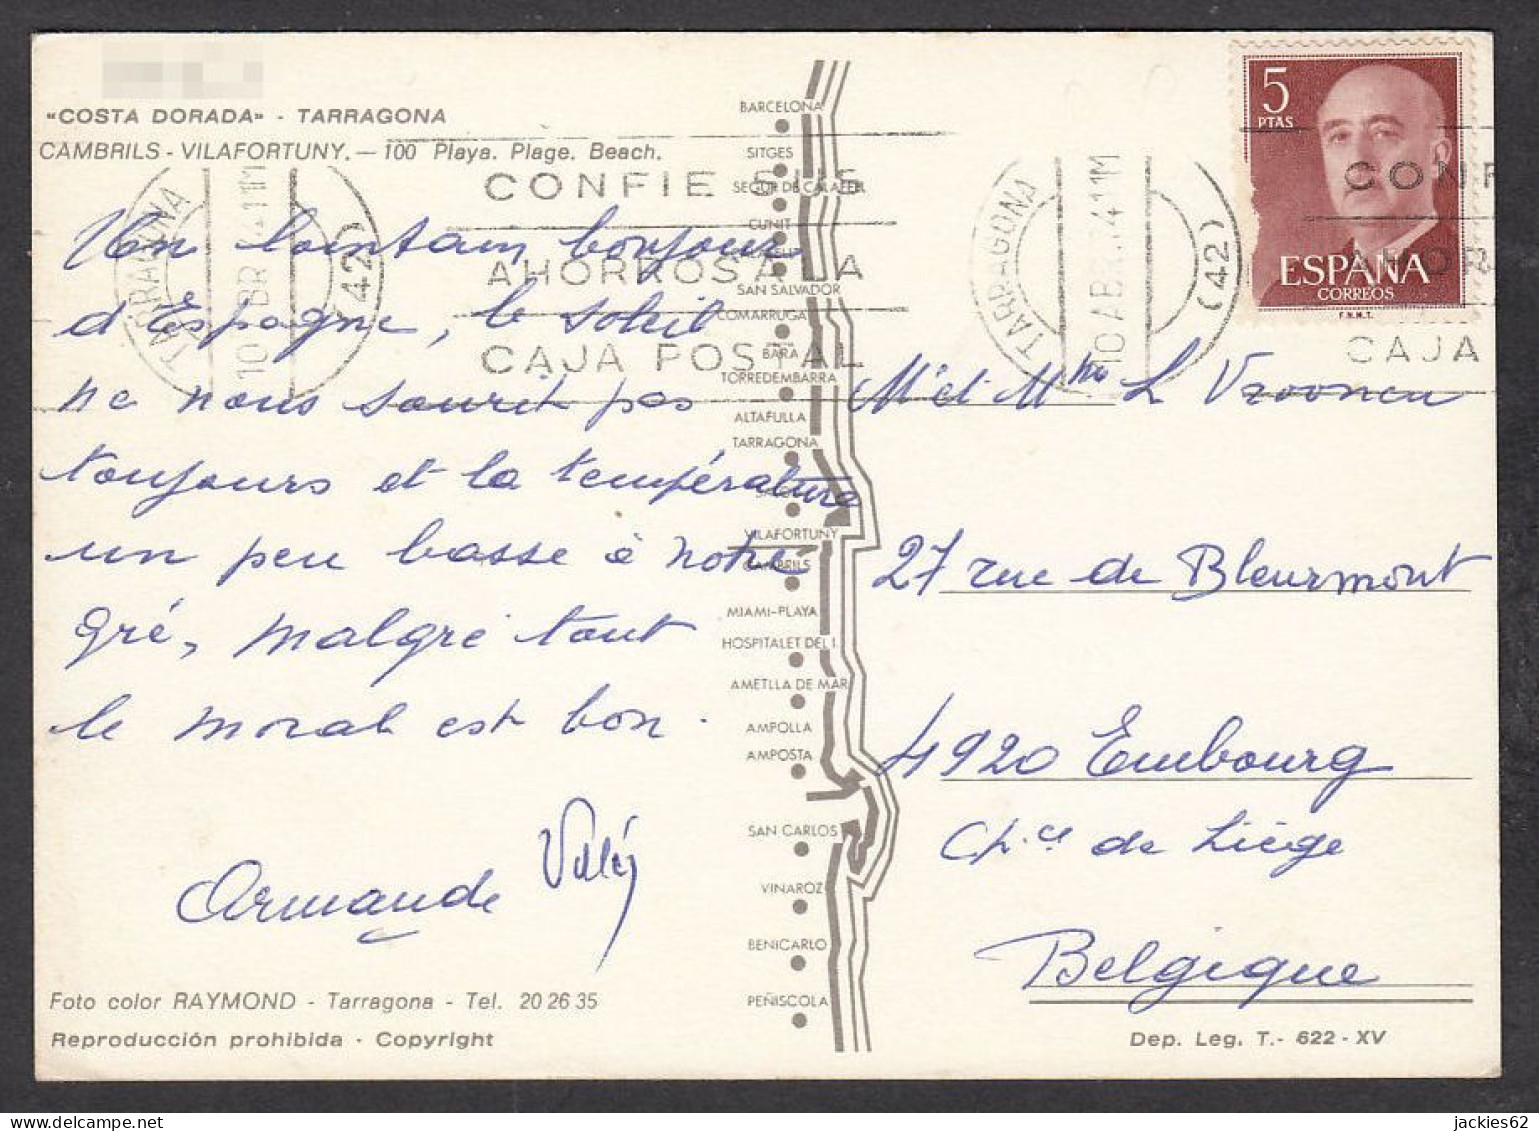 «COSTA DORADA» - TARRAGONA
CAMBRILS - VILAFORTUNY. — 100 Playa. Plage. Beach.
Un lointain bonjour
d'Espagne, le soleil
ne nous sourit pas
toujours et la température
un peu basse à notre
gré, malgré tout
le moral est bon.
Armande
Foto color RAYMOND - Tarragona - Tel. 20 26 35
Reproducción prohibida - Copyright
TARRAGONA
10 ABR. 74 11M
(42)
CONFIE SUS
AHORROS A LA
CAJA POSTAL
BARCELONA
SITGES
SEGUR DE CALAFELL
CUNIT
SAN SALVADOR
COMARRUGA
BARA
TORREDEMBARRA
ALTAFULLA
TARRAGONA
VILAFORTUNY
CAMBRILS
MIAMI-PLAYA
HOSPITALET DEL I.
AMETLLA DE MAR
AMPOLLA
AMPOSTA
SAN CARLOS
VINAROZ
BENICARLO
PEÑISCOLA
TARRAGONA
10 ABR. 74 11M
(42)
5
PTAS
ESPAÑA
CORREOS
F.N.M.T.
CONF
AHOR
CAJA
Mr et Mme L Vroonen
27 rue de Bleurmont
4920 Embourg
de Liège
Belgique
Dep. Leg. T.- 622 - XV
jackies62